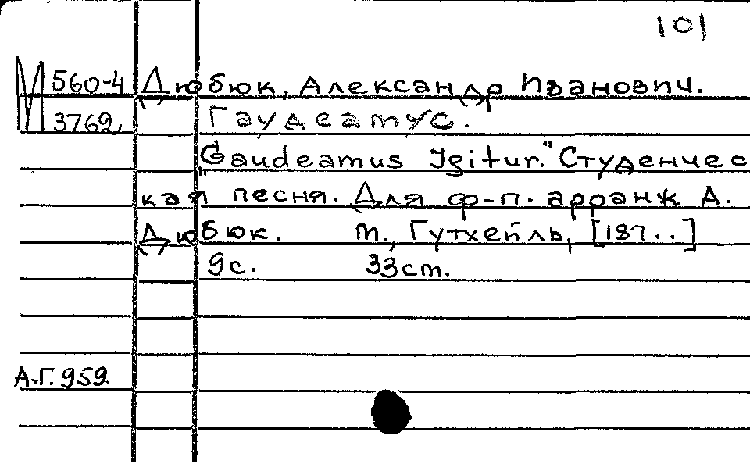 101
М 560-4 Дюбюк, Александр Иванович.
3769, Гаудеатус.
"Gaudeamus Igitur." Студенчес
кая песня. Для ф-п. арранж А.
Дюбюк. М., Гутхейль, [187..]
9с. 33см.
А.Г. 959